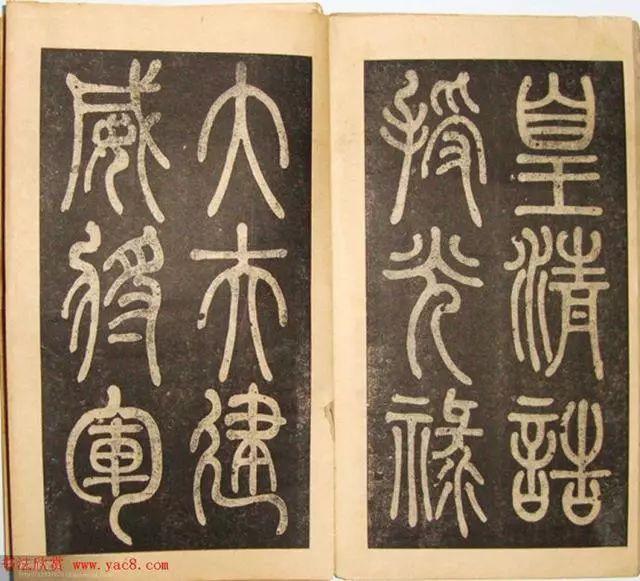 皇清誥
授光祿
大夫建
威將軍
书法欣赏 www.yac8.com